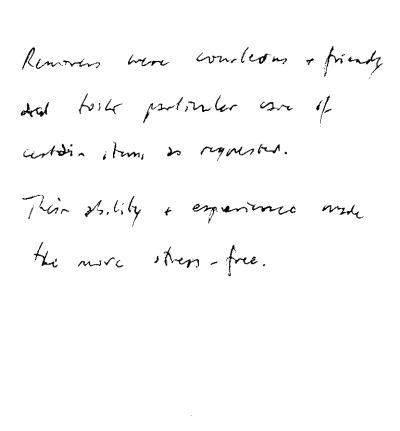 Removers were courteous + friendly
and took particular care of
certain items as requested.
Their ability + experience made
the move stress-free.